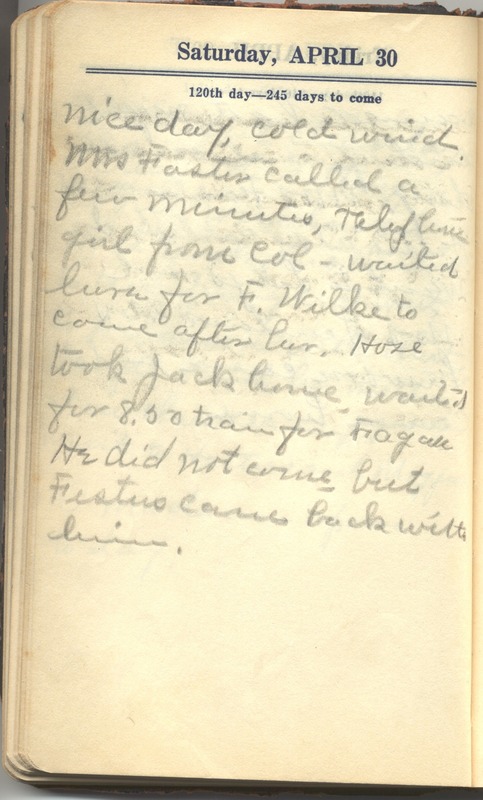 Saturday, APRIL 30
120th day—245 days to come
nice day, cold wind.
Mrs Foster called a
few minutes, Telephone
girl from Col - waited
here for F. Wilke to
come after her. Hose
took Jack home waited
for 8.50 train for Fagan
He did not come but
Festus came back with
him.